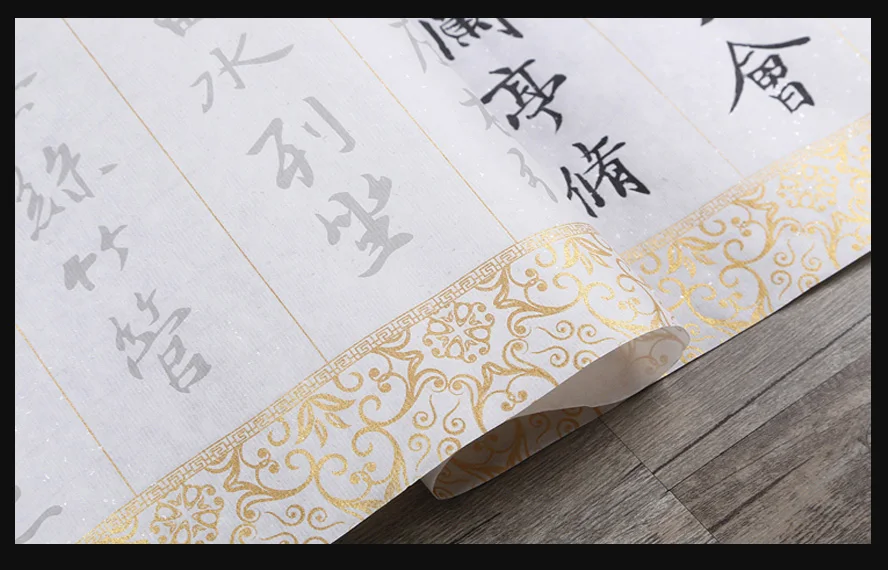 會
蘭亭脩
水列坐
絲竹管